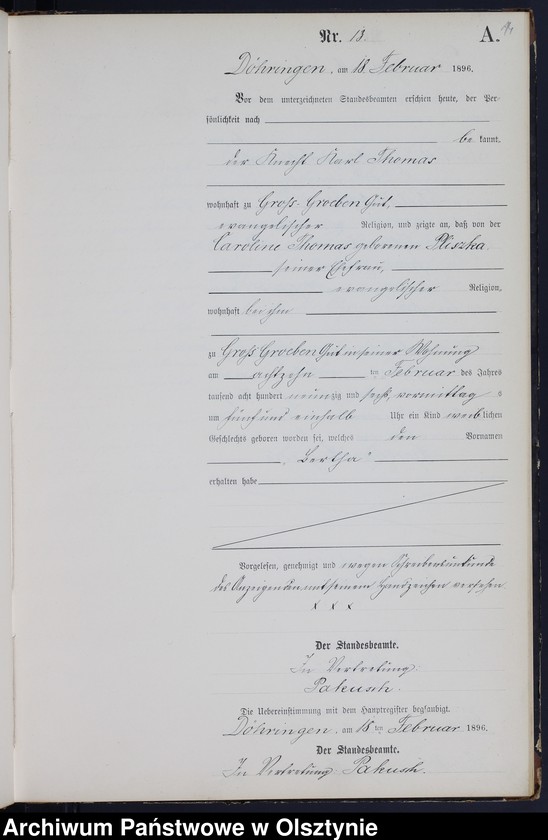 Nr. 13.
A.
Döhringen, am 18. Februar 1896.
Vor dem unterzeichneten Standesbeamten erschien heute, der Per-
sönlichkeit nach
be kannt,
der Knecht Karl Thomas
wohnhaft zu Groß-Groeben Gut,
evangelischer Religion, und zeigte an, daß von der
Caroline Thomas geborenen Pliszka,
seiner Ehefrau,
evangelischer Religion,
wohnhaft bei ihm
zu Groß Groeben Gut in seiner Wohnung
am achtzehn ten Februar des Jahres
tausend acht hundert neunzig und sechs, vormittag s
um fünf und einhalb Uhr ein Kind weiblichen
Geschlechts geboren worden sei, welches den Vornamen
„Bertha“
erhalten habe
Vorgelesen, genehmigt und wegen Schreibensunkunde
des Anzeigenden mit seinem Handzeichen versehen.
x x x
Der Standesbeamte.
In Vertretung:
Pakusch.
Die Uebereinstimmung mit dem Hauptregister beglaubigt.
Döhringen, am 18 ten Februar 1896.
Der Standesbeamte.
In Vertretung: Pakusch.
Archiwum Państwowe w Olsztynie